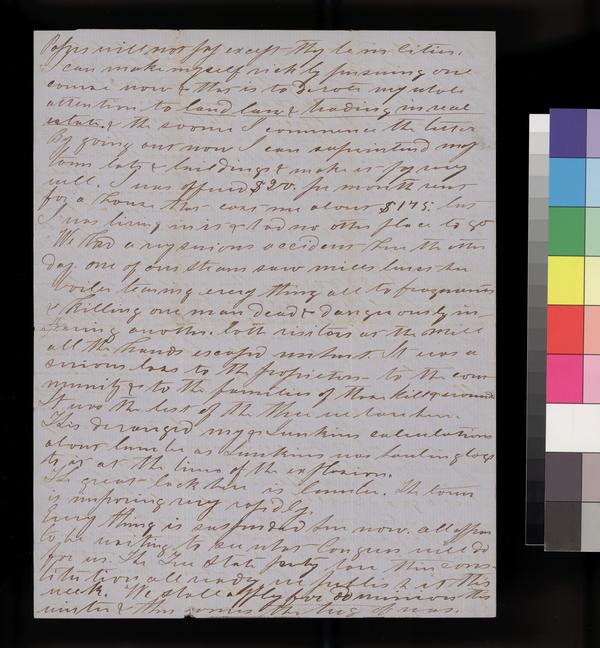 Papers will not pay except they be in cities.
I can make myself rich by pursuing one
course now & that is to devote my whole
attention to land law & trading in real
estate, & the sooner I commence the better
By going out now I can superintend my
town lots & buildings & make it pay very
well. I was offered $20. per month rent
for a house that cost me about $175. but
I was living in it & had no other place to go
We had a very serious accident here the other
day. one of our steam saw mills burst her
boiler tearing every thing all to fragments
& killing one man dead & dangerously in-
juring another. both visitors at the mill
all the hands escaped unhurt. It was a
serious loss to the proprietors to the com
munity & to the families of those killed & wounded
It was the best of the three we have here.
This deranged my & Junkins calculations
about lumber as Junkins was hauling logs
to it at the time of the explosion.
The great lack here is lumber. The town
is improving very rapidly.
Every thing is suspended here now. all appear
to be waiting to see what Congress will do
for us. The Free State party have their cons-
titution all ready we publish it this
week. We shall apply for admission this
winter & then comes the tug of war.